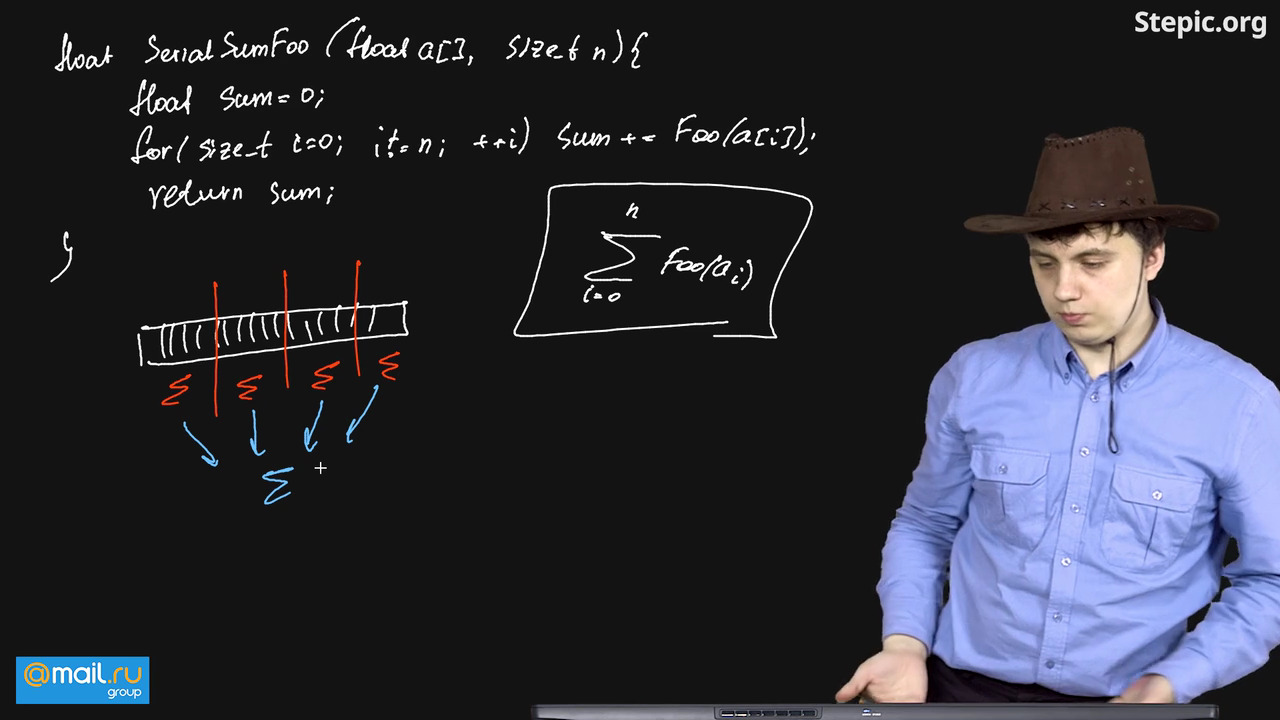 Stepic.org
float SerialSumFoo (float a[], size_t n){
float sum=0;
for( size_t i=0; i!=n; ++i) sum += Foo(a[i]);
return sum;
}
n
∑ Foo(a i)
i=0
Σ Σ Σ Σ
Σ
@mail.ru
group